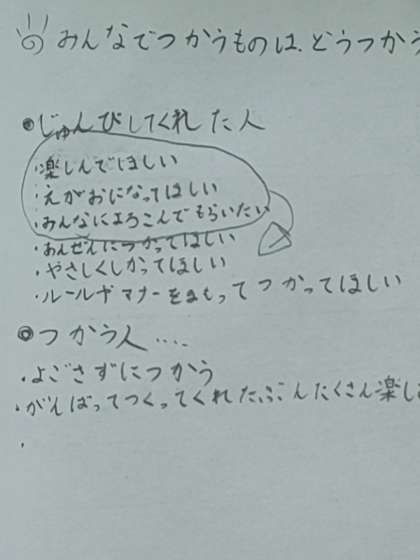 めみんなでつかうものは、どうつかう
◉じゅんびしてくれた人
・楽しんでほしい
・えがおになってほしい
・みんなによろこんでもらいたい
・あんぜんにつかってほしい
・やさしくしかってほしい
・ルールやマナーをまもってつかってほしい
◎つかう人....
・よごさずにつかう
・がんばってつくってくれたぶんたくさん楽し
・